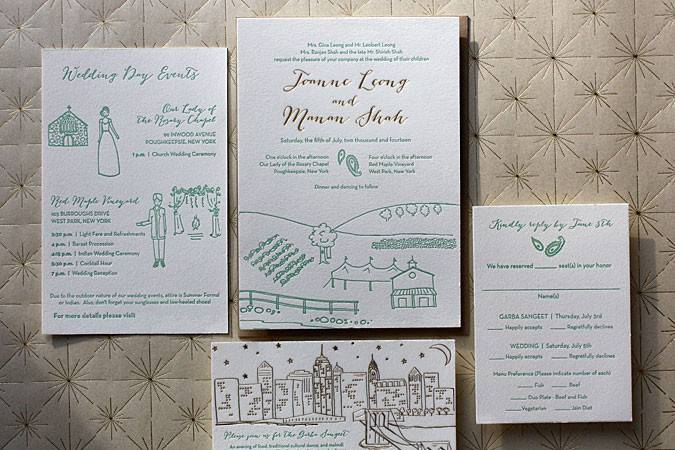 Wedding Day Events
Our Lady of
The Rosary Chapel
99 INWOOD AVENUE
POUGHKEEPSIE, NEW YORK
1 p.m. | Church Wedding Ceremony
Red Maple Vineyard
103 BURROUGHS DRIVE
WEST PARK, NEW YORK
3:30 p.m. | Light Fare and Refreshments
4 p.m. | Baraat Procession
4:30 p.m. | Indian Wedding Ceremony
5:30 p.m. | Cocktail Hour
7 p.m. | Wedding Reception
Due to the outdoor nature of our wedding events, attire is Summer Formal
or Indian. Also, don't forget your sunglasses and low-heeled shoes!
For more details please visit
Mrs. Gina Leong and Mr. Lambert Leong
Mrs. Ranjan Shah and the late Mr. Shirish Shah
request the pleasure of your company at the wedding of their children
Joanne Leong
and
Manan Shah
Saturday, the fifth of July, two thousand and fourteen
One o'clock in the afternoon
Our Lady of the Rosary Chapel
Poughkeepsie, New York
Four o'clock in the afternoon
Red Maple Vineyard
West Park, New York
Dinner and dancing to follow
Kindly reply by June 5th
We have reserved ____ seat(s) in your honor
Name(s)
GARBA SANGEET | Thursday, July 3rd
Happily accepts Regretfully declines
WEDDING | Saturday, July 5th
Happily accepts Regretfully declines
Menu Preference (Please indicate number of each)
Fish Beef
Duo Plate - Beef and Fish
Vegetarian Jain Diet
Please join us for the Garba Sangeet
An evening of food, traditional cultural dance, and mehndi